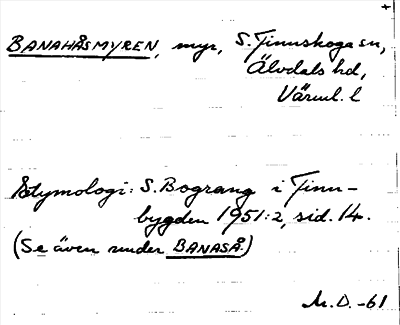 BANAHÅSMYREN, myr, S. Finnskoga sn,
Älvdals hd,
Värml. l
Etymologi: S. Bograng i Finn-
bygden 1951:2, sid. 14.
(Se även under BANASÅ.)
M. D. -61